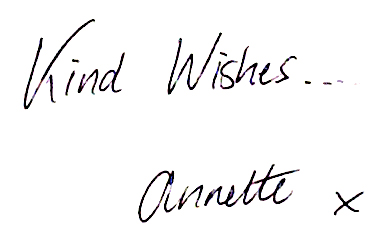 Kind Wishes....
Annette x